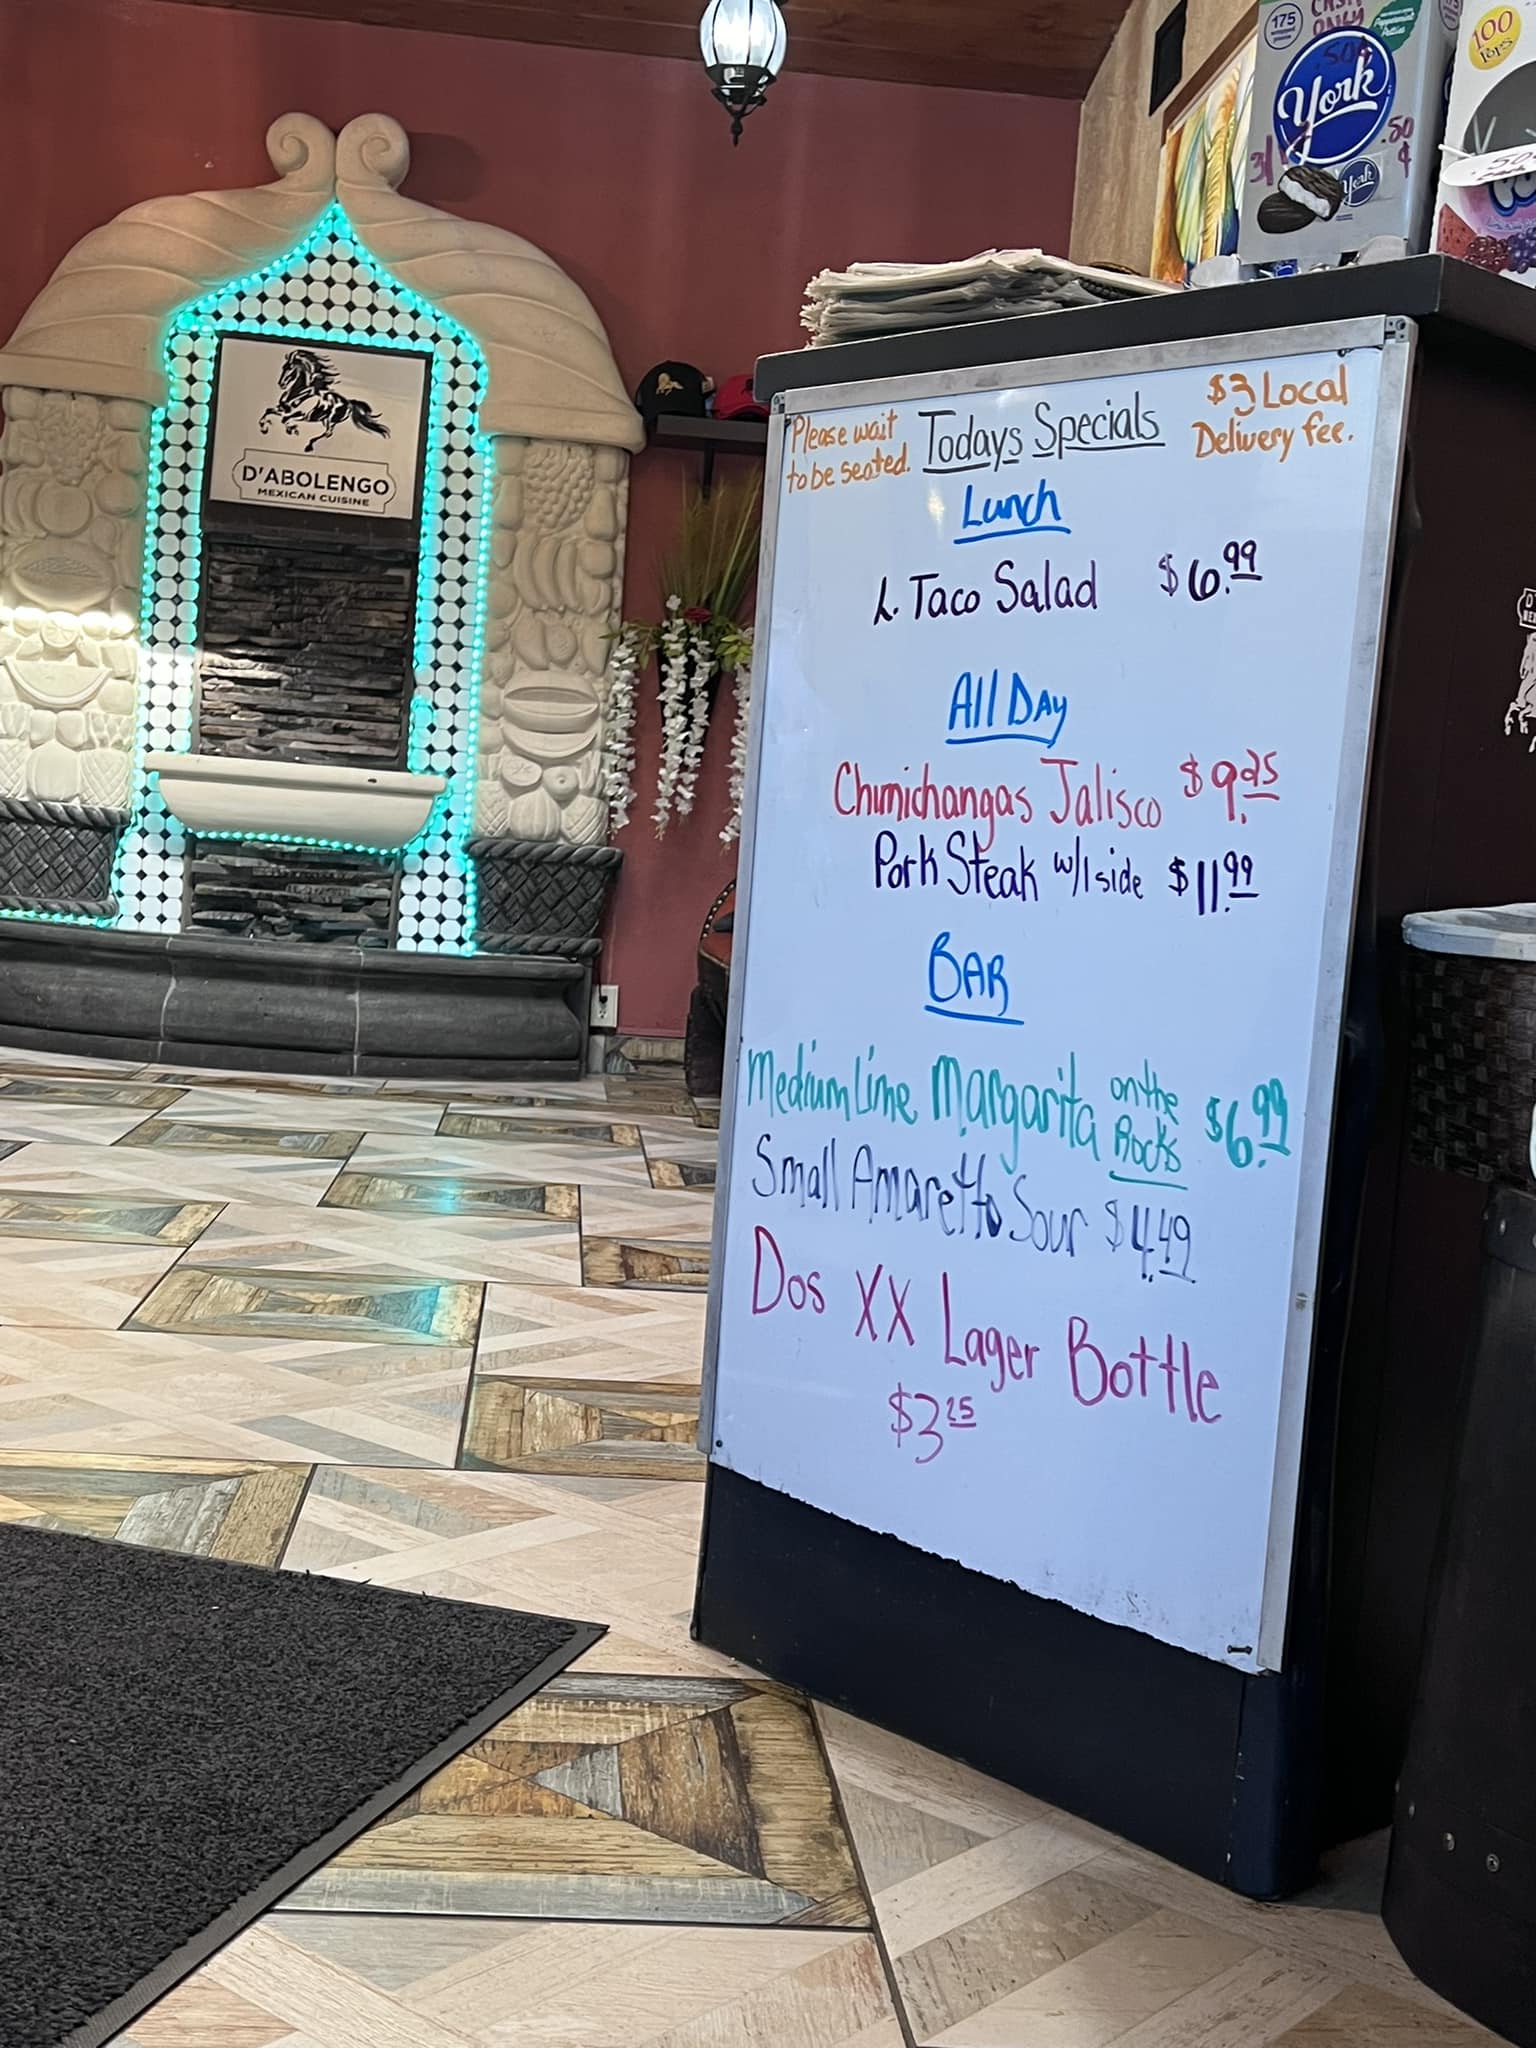 D'ABOLENGO
MEXICAN CUISINE
175
CASH
ONLY
.50¢
York
3/
.50
¢
York
100
Pops
.50¢
Please wait
to be seated.
Todays Specials
$3 Local
Delivery fee.
Lunch
L. Taco Salad $6.99
All Day
Chimichangas Jalisco $9.25
Pork Steak w/1 side $11.99
BAR
Medium Lime Margarita on the Rocks $6.99
Small Amaretto Sour $4.49
Dos XX Lager Bottle
$3.25